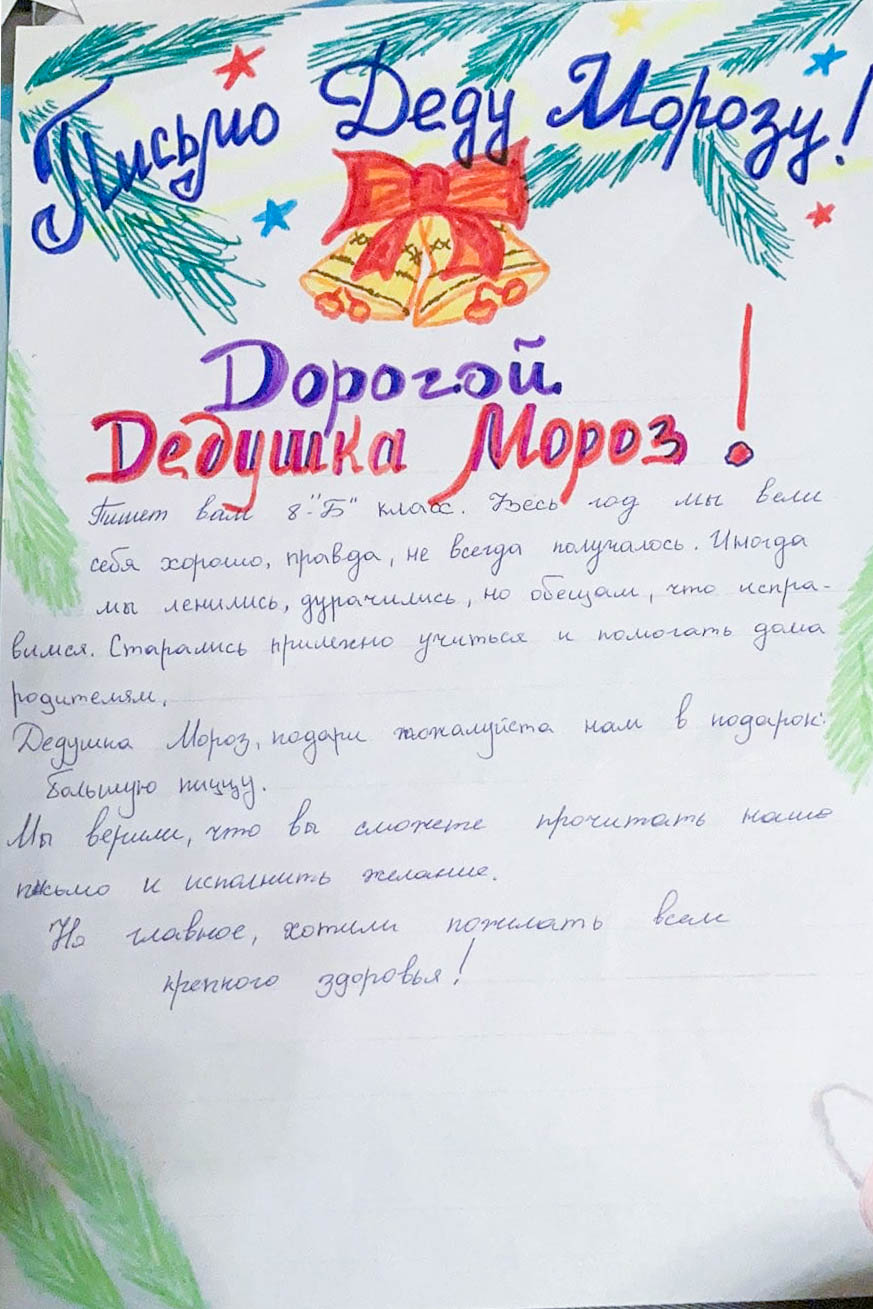 Письмо Деду Морозу!
Дорогой
Дедушка Мороз!
Пишет вам 8-"Б" класс. Весь год мы вели
себя хорошо, правда, не всегда получалось. Иногда
мы ленились, дурачились, но обещаем, что испра-
вимся. Старались прилежно учиться и помогать дома
родителям.
Дедушка Мороз, подари пожалуйста нам в подарок:
большую пиццу.
Мы верили, что вы сможете прочитать наше
письмо и исполнить желание.
Но главное, хотили пожилать всем
крепкого здоровья!